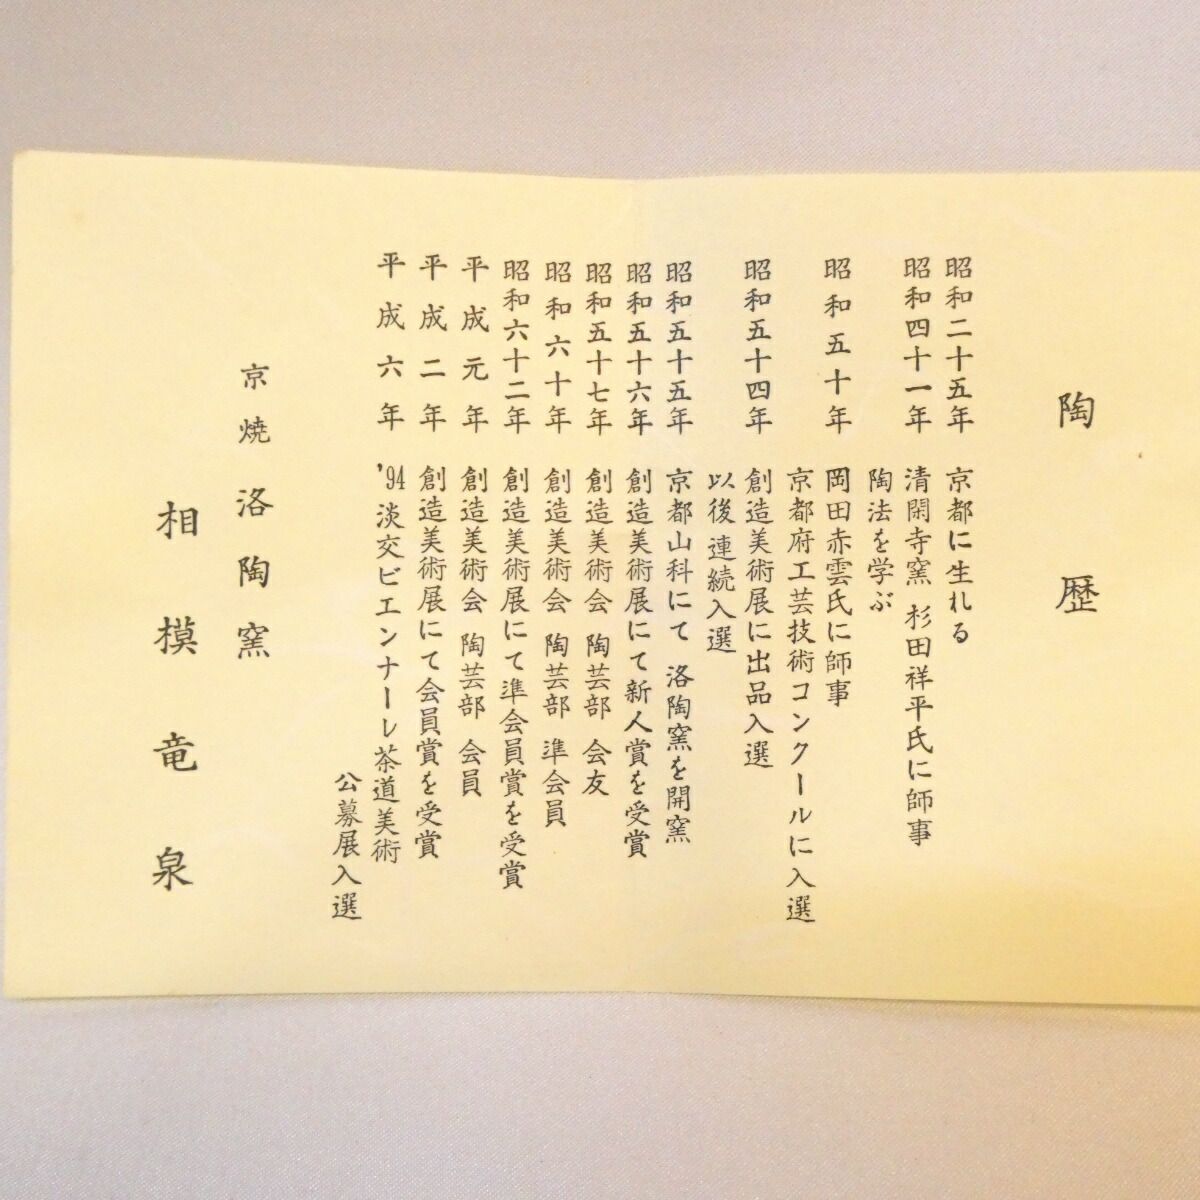 陶歴
昭和二十五年 京都に生れる
昭和四十一年 清閑寺窯 杉田祥平氏に師事
陶法を学ぶ
昭和五十年 岡田赤雲氏に師事
京都府工芸技術コンクールに入選
昭和五十四年 創造美術展に出品入選
以後連続入選
昭和五十五年 京都山科にて 洛陶窯を開窯
昭和五十六年 創造美術展にて新人賞を受賞
昭和五十七年 創造美術会 陶芸部 会友
昭和六十年 創造美術会 陶芸部 準会員
昭和六十二年 創造美術展にて準会員賞を受賞
平成元年 創造美術会 陶芸部 会員
平成二年 創造美術展にて会員賞を受賞
平成六年 '94淡交ビエンナーレ茶道美術
公募展入選
京焼 洛陶窯
相模竜泉